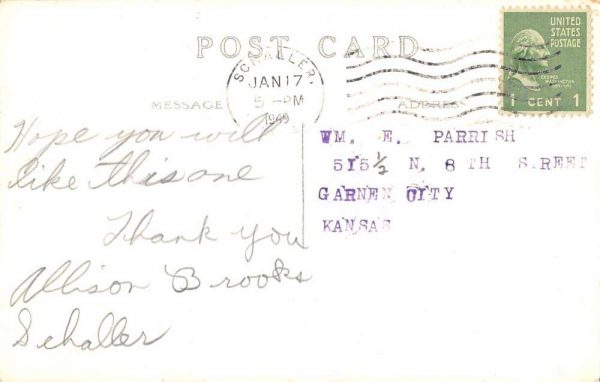 POST CARD
UNITED
STATES
POSTAGE
GEORGE
WASHINGTON
1 CENT 1
SCHALLER,
JAN 17
5 - PM
1949
MESSAGE
ADDRESS
Hope you will
like this one
Thank you
Allison Brooks
Schaller
WM. E. PARRISH
515½ N. 8 TH STREET
GARNEN CITY
KANSAS